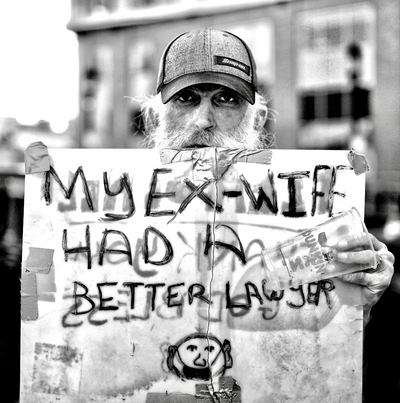 MY EX-WIFE
HAD A
BETTER LAWYER